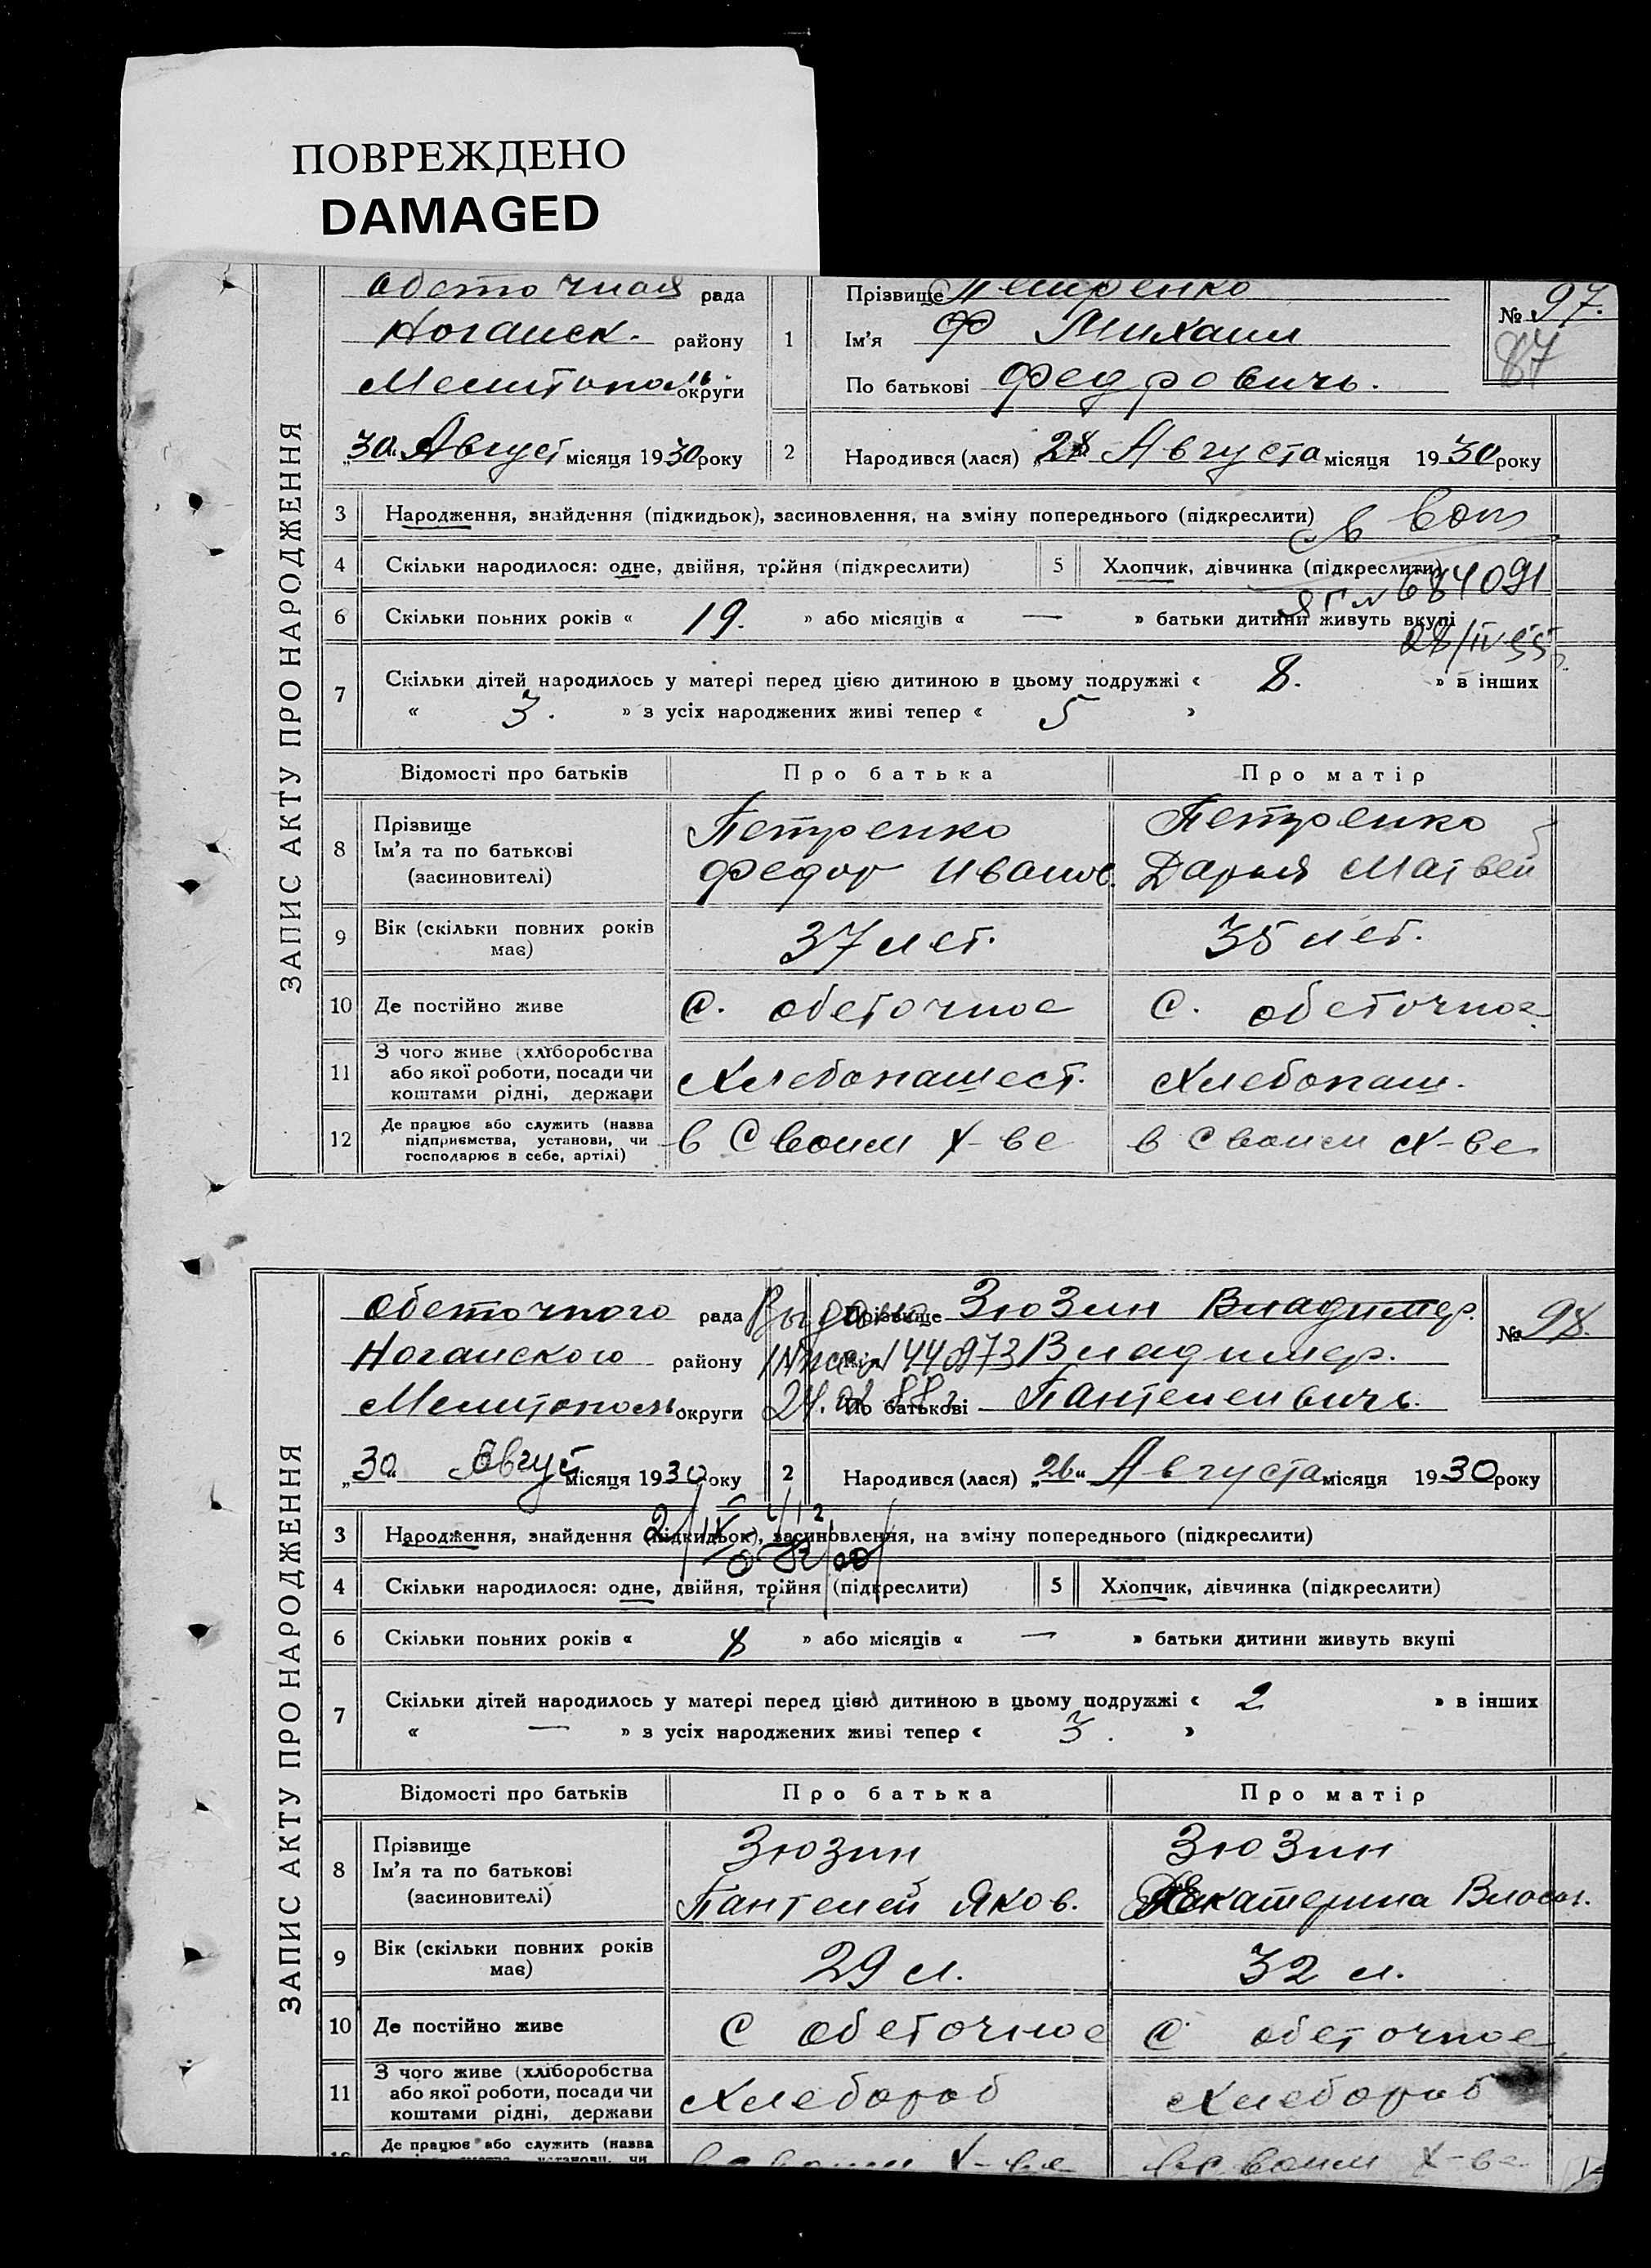 ПОВРЕЖДЕНО
DAMAGED
ЗАПИС АКТУ ПРО НАРОДЖЕННЯ
Обеточная рада
Ногайск. району
Мелитополь округи
„30“ Август місяця 1930 року
1 Прізвище Петренко
Ім'я Ф Михаил
По батькові Федровичь.
№ 97.
87
2 Народився (лася) „28“ Августа місяця 1930 року
3 Народження, знайдення (підкидьок), засиновлення, на зміну попереднього (підкреслити)
4 Скільки народилося: одне, двійня, трійня (підкреслити) 5 Хлопчик, дівчинка (підкреслити)
684091
6 Скільки повних років « 19. » або місяців « — » батьки дитини живуть вкупі
28/IV 55
7 Скільки дітей народилось у матері перед цією дитиною в цьому подружжі « 8. » в інших
« 3. » з усіх народжених живі тепер « 5 »
Відомості про батьків Про батька Про матір
8 Прізвище Ім'я та по батькові (засиновителі) Петренко Федор Иванов. Петренко Дарья Матвей
9 Вік (скільки повних років має) 37 лет. 35 лет.
10 Де постійно живе С. Обеточное С. Обеточное
11 З чого живе (хліборобства або якої роботи, посади чи коштами рідні, держави Хлебопашест. Хлебопаш.
12 Де працює або служить (назва підприємства, установи, чи господарює в себе, артілі) в Своим х-ве в Своим х-ве
ЗАПИС АКТУ ПРО НАРОДЖЕННЯ
Обеточного рада
Ногайского району
Мелитополь округи
„30“ Август місяця 1930 року
Прізвище Зюзин Владимер.
144973
Владимер.
По батькові Пантелевичь.
№ 98.
2 Народився (лася) „26“ Августа місяця 1930 року
3 Народження, знайдення (підкидьок), засиновлення, на зміну попереднього (підкреслити)
4 Скільки народилося: одне, двійня, трійня (підкреслити) 5 Хлопчик, дівчинка (підкреслити)
6 Скільки повних років « 8 » або місяців « — » батьки дитини живуть вкупі
7 Скільки дітей народилось у матері перед цією дитиною в цьому подружжі « 2 » в інших
« — » з усіх народжених живі тепер « 3. »
Відомості про батьків Про батька Про матір
8 Прізвище Ім'я та по батькові (засиновителі) Зюзин Пантелей Яков. Зюзин Екатерина Власов.
9 Вік (скільки повних років має) 29 л. 32 л.
10 Де постійно живе С Обеточное С. Обеточное
11 З чого живе (хліборобства або якої роботи, посади чи коштами рідні, держави Хлебороб Хлебороб
Де працює або служить (назва установи, чи в своим х-ве в своим х-ве